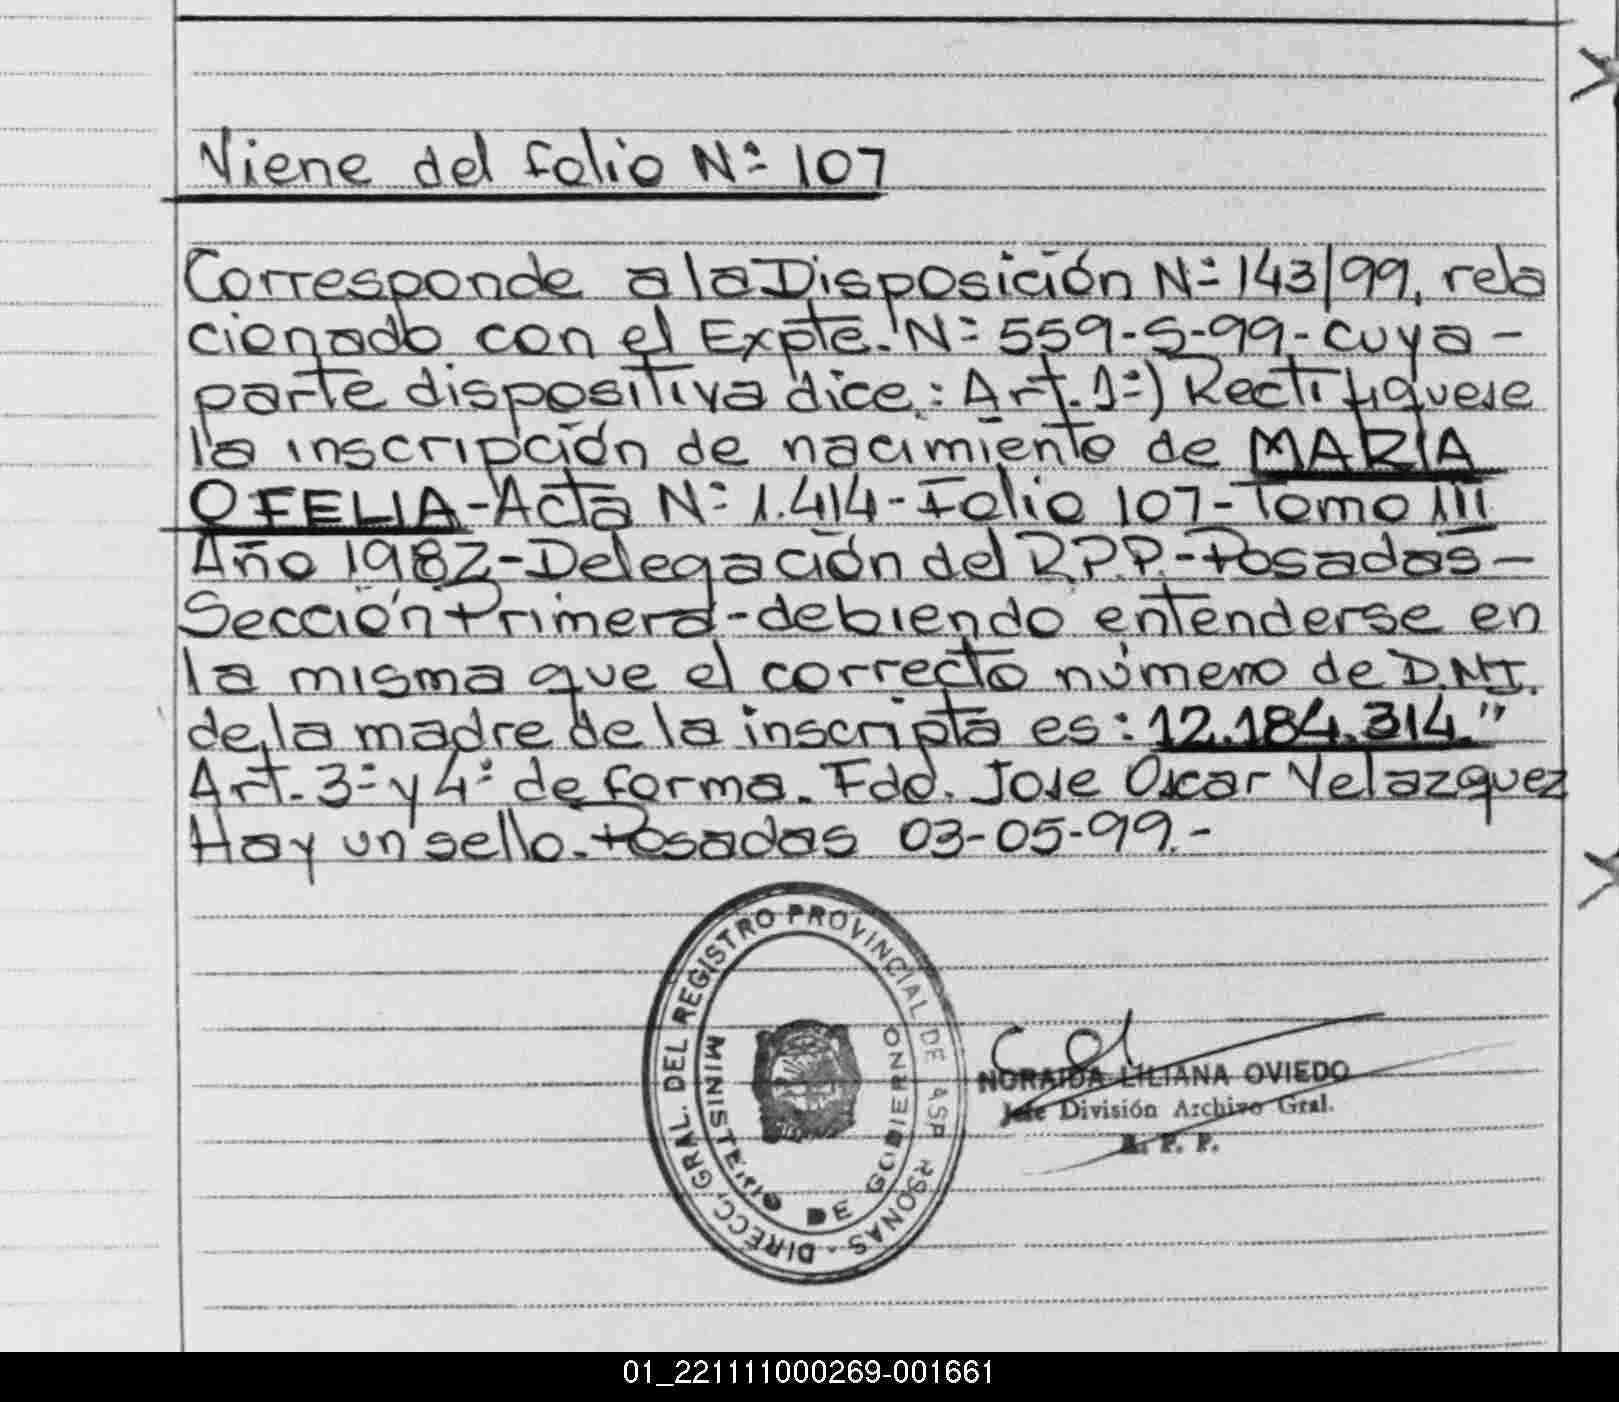 Viene del folio Nº 107
Corresponde a la Disposición Nº 143/99, rela
cionado con el Expte. Nº 559-S-99-cuya-
parte dispositiva dice: Art. 1º) Rectifíquese
la inscripción de nacimiento de MARIA
OFELIA-Acta Nº 1.414-Folio 107-Tomo III
Año 1982-Delegación del R.P.P.-Posadas-
Sección Primera-debiendo entenderse en
la misma que el correcto número de D.N.I.
de la madre de la inscripta es: 12.184.314."
Art. 3º y 4º de forma. Fdo. Jose Oscar Velazquez
Hay un sello. Posadas 03-05-99.-
DIRECC. GRAL. DEL REGISTRO PROVINCIAL DE LAS PERSONAS -
MINISTERIO DE GOBIERNO
NORAIDA LILIANA OVIEDO
Jefe División Archivo Gral.
R. P. P.
01_221111000269-001661